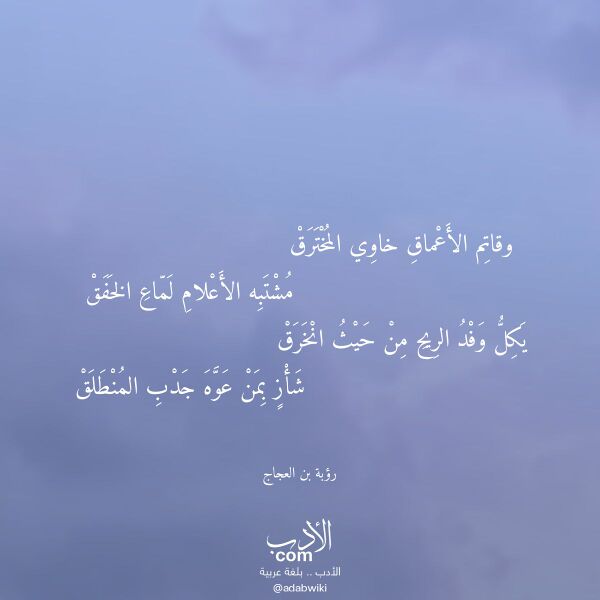 وقاتِم الأَعْماقِ خاوِي المُخْتَرَقْ
مُشْتَبِه الأَعْلامِ لَمّاعِ الخَفَقْ
يَكِلُّ وَفْدُ الرِيحِ مِنْ حَيْثُ انْخَرَقْ
شَأْزٍ بِمَنْ عَوَّهَ جَدْبِ المُنْطَلَقْ
رؤبة بن العجاج
الأدب
com
الأدب .. بلغة عربية
@adabwiki